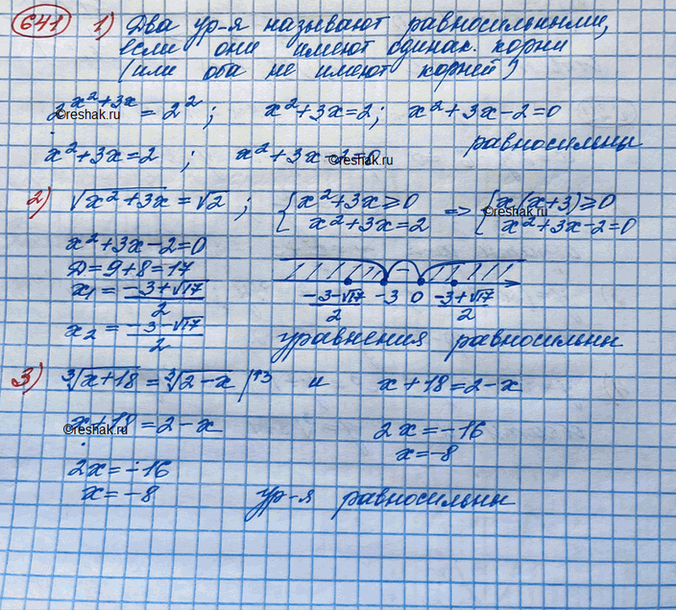 641 1) Два ур-я называют равносильными,
если они имеют одинак. корни
(или оба не имеют корней)
2^(x²+3x) = 2² ; x²+3x=2; x²+3x-2=0
©reshak.ru
x²+3x=2 ; x²+3x-2=0 равносильны
©reshak.ru
2) √(x²+3x) = √2 ; { x²+3x≥0 => { x(x+3)≥0
x²+3x=2 x²+3x-2=0
©reshak.ru
x²+3x-2=0
D=9+8=17
x₁ = (-3+√17)/2
(-3-√17)/2 -3 0 (-3+√17)/2
x₂ = (-3-√17)/2
уравнения равносильны
3) ∛(x+18) = ∛(2-x) |↑3 и x+18=2-x
x+18=2-x 2x=-16
©reshak.ru
x=-8
2x=-16
x=-8 ур-я равносильны